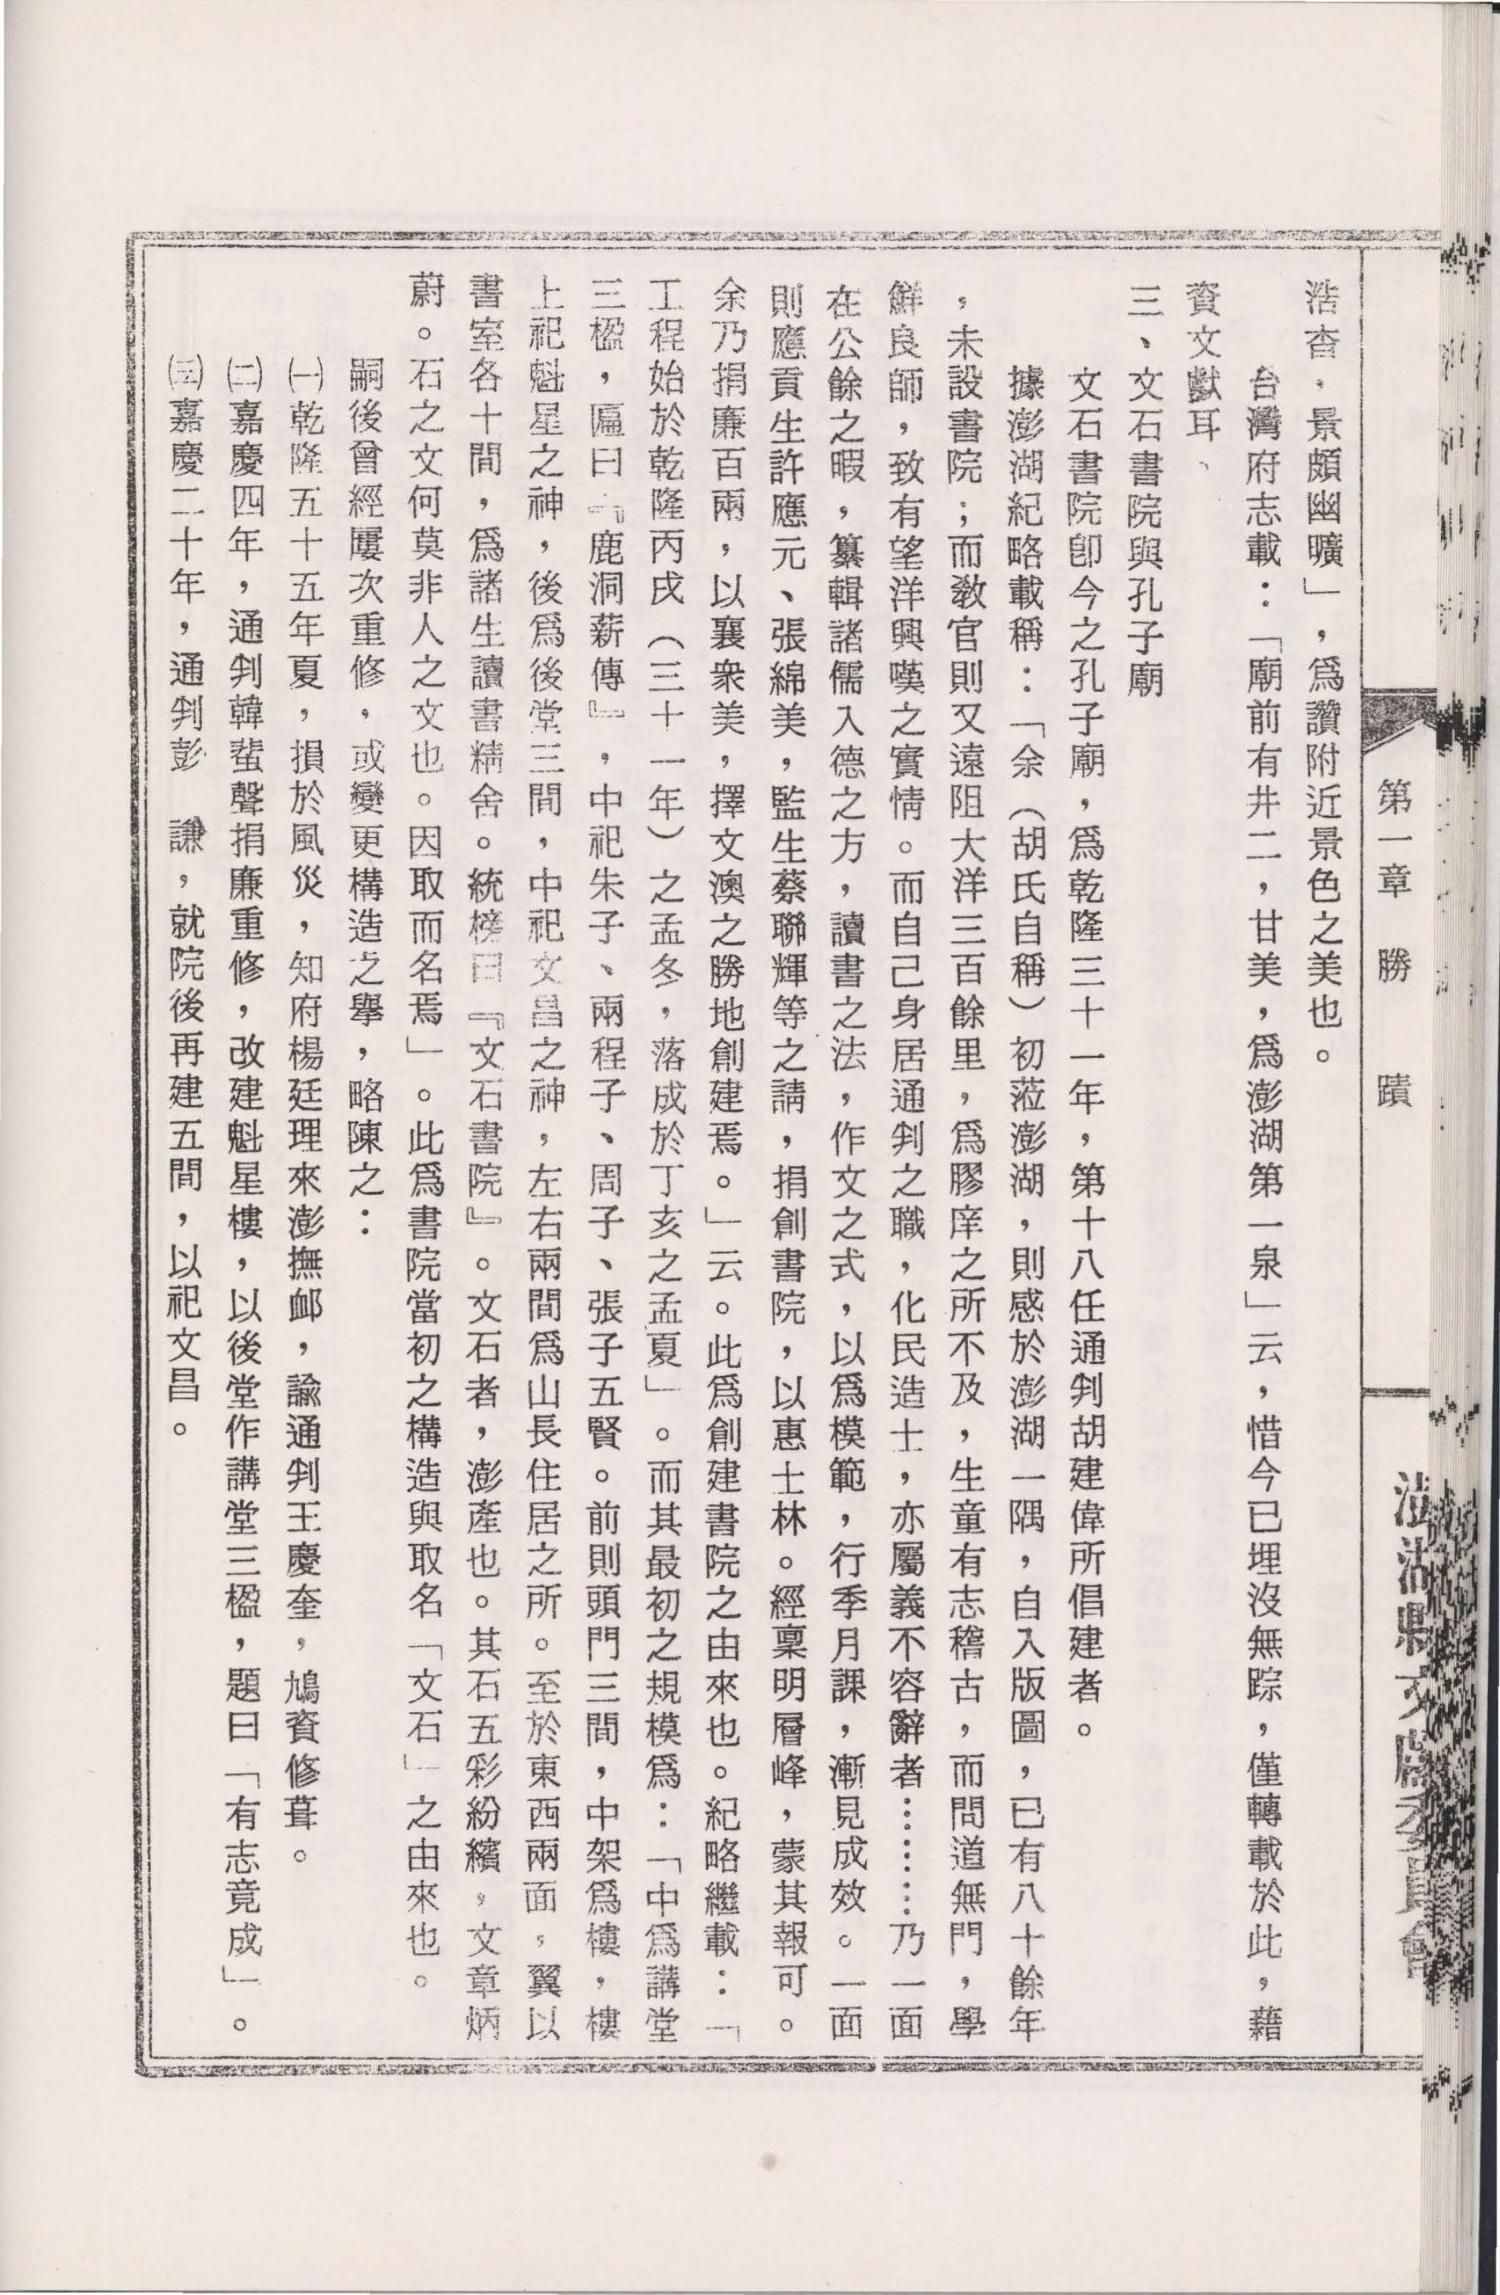 第一章　勝　蹟
澎湖縣文獻委員會
浩杳，景頗幽曠」，爲讚附近景色之美也。
台灣府志載：「廟前有井二，甘美，爲澎湖第一泉」云，惜今已埋沒無踪，僅轉載於此，藉
資文獻耳、
三、文石書院與孔子廟
文石書院卽今之孔子廟，爲乾隆三十一年，第十八任通判胡建偉所倡建者。
據澎湖紀略載稱：「余（胡氏自稱）初蒞澎湖，則感於澎湖一隅，自入版圖，已有八十餘年
，未設書院；而敎官則又遠阻大洋三百餘里，爲膠庠之所不及，生童有志稽古，而問道無門，學
鮮良師，致有望洋興嘆之實情。而自己身居通判之職，化民造士，亦屬義不容辭者………乃一面
在公餘之暇，纂輯諸儒入德之方，讀書之法，作文之式，以爲模範，行季月課，漸見成效。一面
則應貢生許應元、張綿美，監生蔡聯輝等之請，捐創書院，以惠士林。經稟明層峰，蒙其報可。
余乃捐廉百兩，以襄衆美，擇文澳之勝地創建焉。」云。此爲創建書院之由來也。紀略繼載：「
工程始於乾隆丙戌（三十一年）之孟冬，落成於丁亥之孟夏」。而其最初之規模爲：「中爲講堂
三楹，匾曰『鹿洞薪傳』，中祀朱子、兩程子、周子、張子五賢。前則頭門三間，中架爲樓，樓
上祀魁星之神，後爲後堂三間，中祀文昌之神，左右兩間爲山長住居之所。至於東西兩面，翼以
書室各十間，爲諸生讀書精舍。統榜曰『文石書院』。文石者，澎產也。其石五彩紛繽，文章炳
蔚。石之文何莫非人之文也。因取而名焉」。此爲書院當初之構造與取名「文石」之由來也。
嗣後曾經屢次重修，或變更構造之舉，略陳之：
㈠乾隆五十五年夏，損於風災，知府楊廷理來澎撫卹，諭通判王慶奎，鳩資修葺。
㈡嘉慶四年，通判韓蜚聲捐廉重修，改建魁星樓，以後堂作講堂三楹，題曰「有志竟成」。
㈢嘉慶二十年，通判彭　謙，就院後再建五間，以祀文昌。